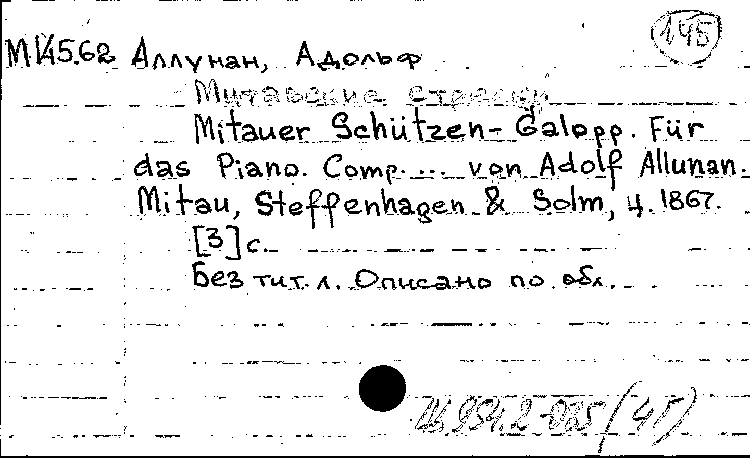 145
М 145.62 Аллунан, Адольф
Митавские стрелки
Mitauer Schützen-Galopp. Für
das Piano. Comp. ... von Adolf Allunan.
Mitau, Steffenhagen & Solm, ч. 1867.
[3] с.
Без тит. л. Описано по обл.